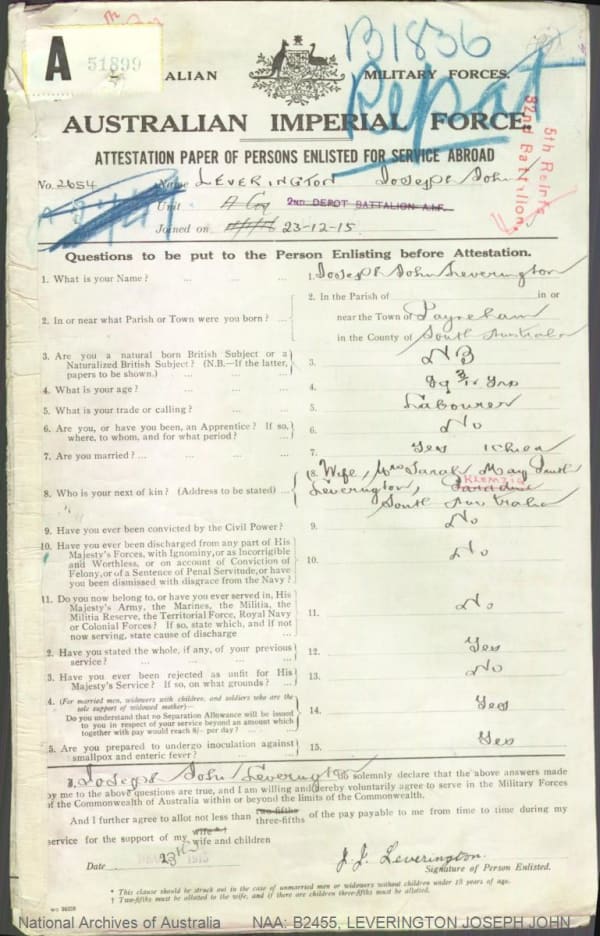 A 51899
B1836
ALIAN MILITARY FORCES.
Repat
AUSTRALIAN IMPERIAL FORCE.
ATTESTATION PAPER OF PERSONS ENLISTED FOR SERVICE ABROAD
5th Reinfts
32nd Battalion.
No. 2654 Name LEVERINGTON Joseph John
Unit A Coy 2ND DEPOT BATTALION A.I.F.
Joined on 23-12-15.
Questions to be put to the Person Enlisting before Attestation.
1. What is your Name? ... ... ... 1. Joseph John Leverington
2. In or near what Parish or Town were you born? ... 2. In the Parish of in or
near the Town of Payneham
in the County of South Australia
3. Are you a natural born British Subject or a
Naturalized British Subject? (N.B.—If the latter,
papers to be shown.) ... ... 3. NB
4. What is your age? ... ... ... 4. yrs
5. What is your trade or calling? ... ... 5. Labourer
6. Are you, or have you been, an Apprentice? If so,
where, to whom, and for what period? ... 6. No
7. Are you married? ... ... ... 7. Yes
8. Who is your next of kin? (Address to be stated) ... 8. Wife, Mrs Sarah May
Leverington, Klemzig
South Australia
9. Have you ever been convicted by the Civil Power? 9. No
10. Have you ever been discharged from any part of His
Majesty's Forces, with Ignominy, or as Incorrigible
and Worthless, or on account of Conviction of
Felony, or of a Sentence of Penal Servitude, or have
you been dismissed with disgrace from the Navy? 10. No
11. Do you now belong to, or have you ever served in, His
Majesty's Army, the Marines, the Militia, the
Militia Reserve, the Territorial Force, Royal Navy
or Colonial Forces? If so, state which, and if not
now serving, state cause of discharge ... 11. No
2. Have you stated the whole, if any, of your previous
service? ... ... ... ... 12. Yes
3. Have you ever been rejected as unfit for His
Majesty's Service? If so, on what grounds? ... 13. No
4. (For married men, widowers with children, and soldiers who are the
sole support of widowed mother)—
Do you understand that no Separation Allowance will be issued
to you in respect of your service beyond an amount which
together with pay would reach 8/- per day? ... ... 14. Yes
5. Are you prepared to undergo inoculation against
smallpox and enteric fever? ... ... 15. Yes
I, Joseph John Leverington do solemnly declare that the above answers made
by me to the above questions are true, and I am willing and hereby voluntarily agree to serve in the Military Forces
of the Commonwealth of Australia within or beyond the limits of the Commonwealth.
And I further agree to allot not less than two-fifths three-fifths of the pay payable to me from time to time during my
service for the support of my wife* † wife and children
Date 23rd 1915 J. J. Leverington.
Signature of Person Enlisted.
* This clause should be struck out in the case of unmarried men or widowers without children under 18 years of age.
† Two-fifths must be allotted to the wife, and if there are children three-fifths must be allotted.
National Archives of Australia NAA: B2455, LEVERINGTON JOSEPH JOHN